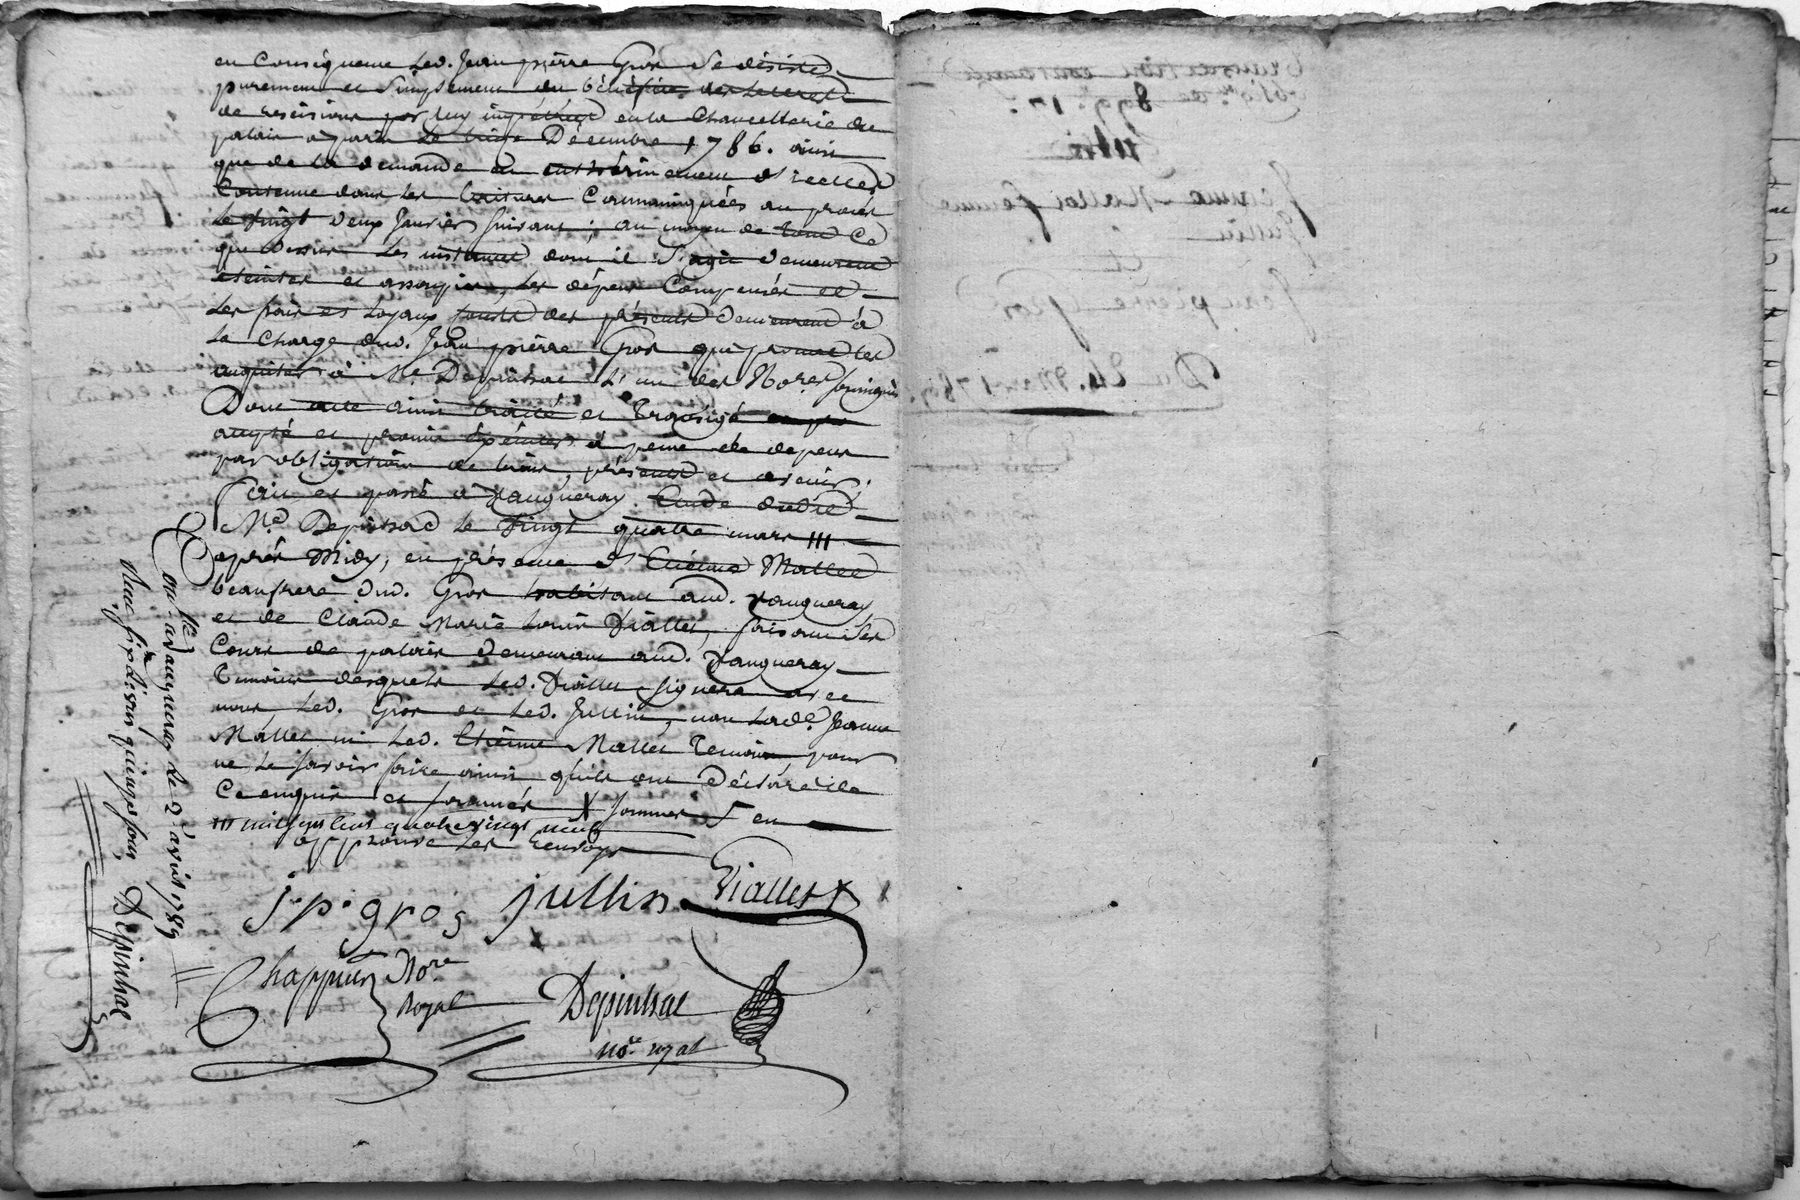 en Conséquence Led. Jean pierre Gros Se désiste
purement et Simplement du bénéfice des Lettres
de rescision par luy impétrées en la Chancellerie du
palais a paris Le treize Décembre 1786. ainsi
que de la demande en enthérinement d'icelles
Contenue dans les Ecritures Communiquées au procès
Le Vingt Deux Janvier Suivant; au moyen de tout Ce
que Dessus Les instances dont il S'agit Demeurent
éteintes et assoupies, Les dépens Compensés et
Les frais et Loyaux Couts des présentes Demeurent à
La Charge dud. Jean pierre Gros qui promet les
acquiter à Me. Depinhac L'un des Nores. Soussignés
Dont acte ainsi traité et Transigé
accepté et promis éxécuter à peine de depens
par obligation de biens présents et avenir;
fait et passé à Vaugneray Etude dudit
Me Depinhac Le Vingt quatre mars III
après Midy, en présence d'Etiènne Mallet
beaufrere dud. Gros habitant aud. Vaugneray
et de Claude Marie Louis Viallet, faisant Ses
Cours de palais Demeurant aud. Vaugneray
Temoins desquels Led. Viallet Signera avec
nous Led. Gros et Led. Jullin, non Lade. Jeanne
Mallet ni Led. Etiènne Mallet Temoin pour
ne Le Savoir faire ainsi qu'ils ont Déclaré de
Ce enquis et Sommés X Sommes en
III mil sept cent quatrevingt neuf
approuvé Les renvoys
j. p. gros jullin Viallet
Chappuis Nore. Royal
Depinhac
nore. royal
Con.llé a vaugneray Le 2 avril 1789
Reçu six Livres quinze sous, Depinhac
Jeanne Mallet femme
Jullin
Et
Jean pierre Gros
Du 24. Mars 1789.